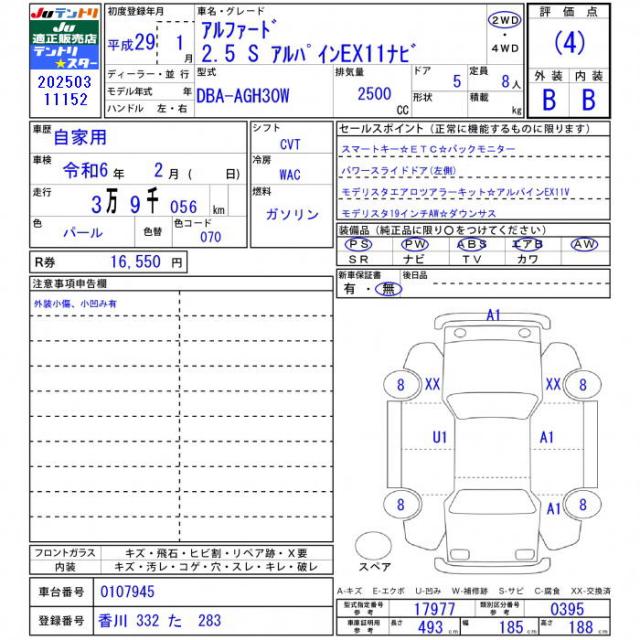 Juテントリ
Ju
適正販売店
テントリ
★スター
202503
11152
初度登録年月
平成29 年 1 月
ディーラー・並行
モデル年式 年
ハンドル 左・右
車名・グレード
アルファード
2.5 S アルパインEX11ナビ
2WD
・
4WD
型式
DBA-AGH30W
排気量
2500 CC
ドア 5
形状
定員 8人
積載 kg
評価点
(4)
外装 内装
B B
車歴
自家用
車検
令和6年 2月( 日)
走行
3万 9千 056 km
色
パール
色替
色コード
070
シフト
CVT
冷房
WAC
燃料
ガソリン
R券 16,550 円
セールスポイント(正常に機能するものに限ります)
スマートキー☆ETC☆バックモニター
パワースライドドア(左側)
モデリスタエアロツアラーキット☆アルパインEX11V
モデリスタ19インチAW☆ダウンサス
装備品(純正品に限り〇をつけてください)
PS PW ABS エアB AW
SR ナビ TV カワ
新車保証書
有・無
後日品
注意事項申告欄
外装小傷、小凹み有
A1
8 XX XX 8
U1 A1
8 A1 8
スペア
フロントガラス キズ・飛石・ヒビ割・リペア跡・X要
内装 キズ・汚レ・コゲ・穴・スレ・キレ・破レ
A-キズ E-エクボ U-凹み W-補修跡 S-サビ C-腐食 XX-交換済
車台番号 0107945
登録番号 香川 332 た 283
型式指定番号 参考 17977
類別区分番号 参考 0395
車庫証明用 参考 長さ 493 cm 幅 185 cm 高さ 188 cm